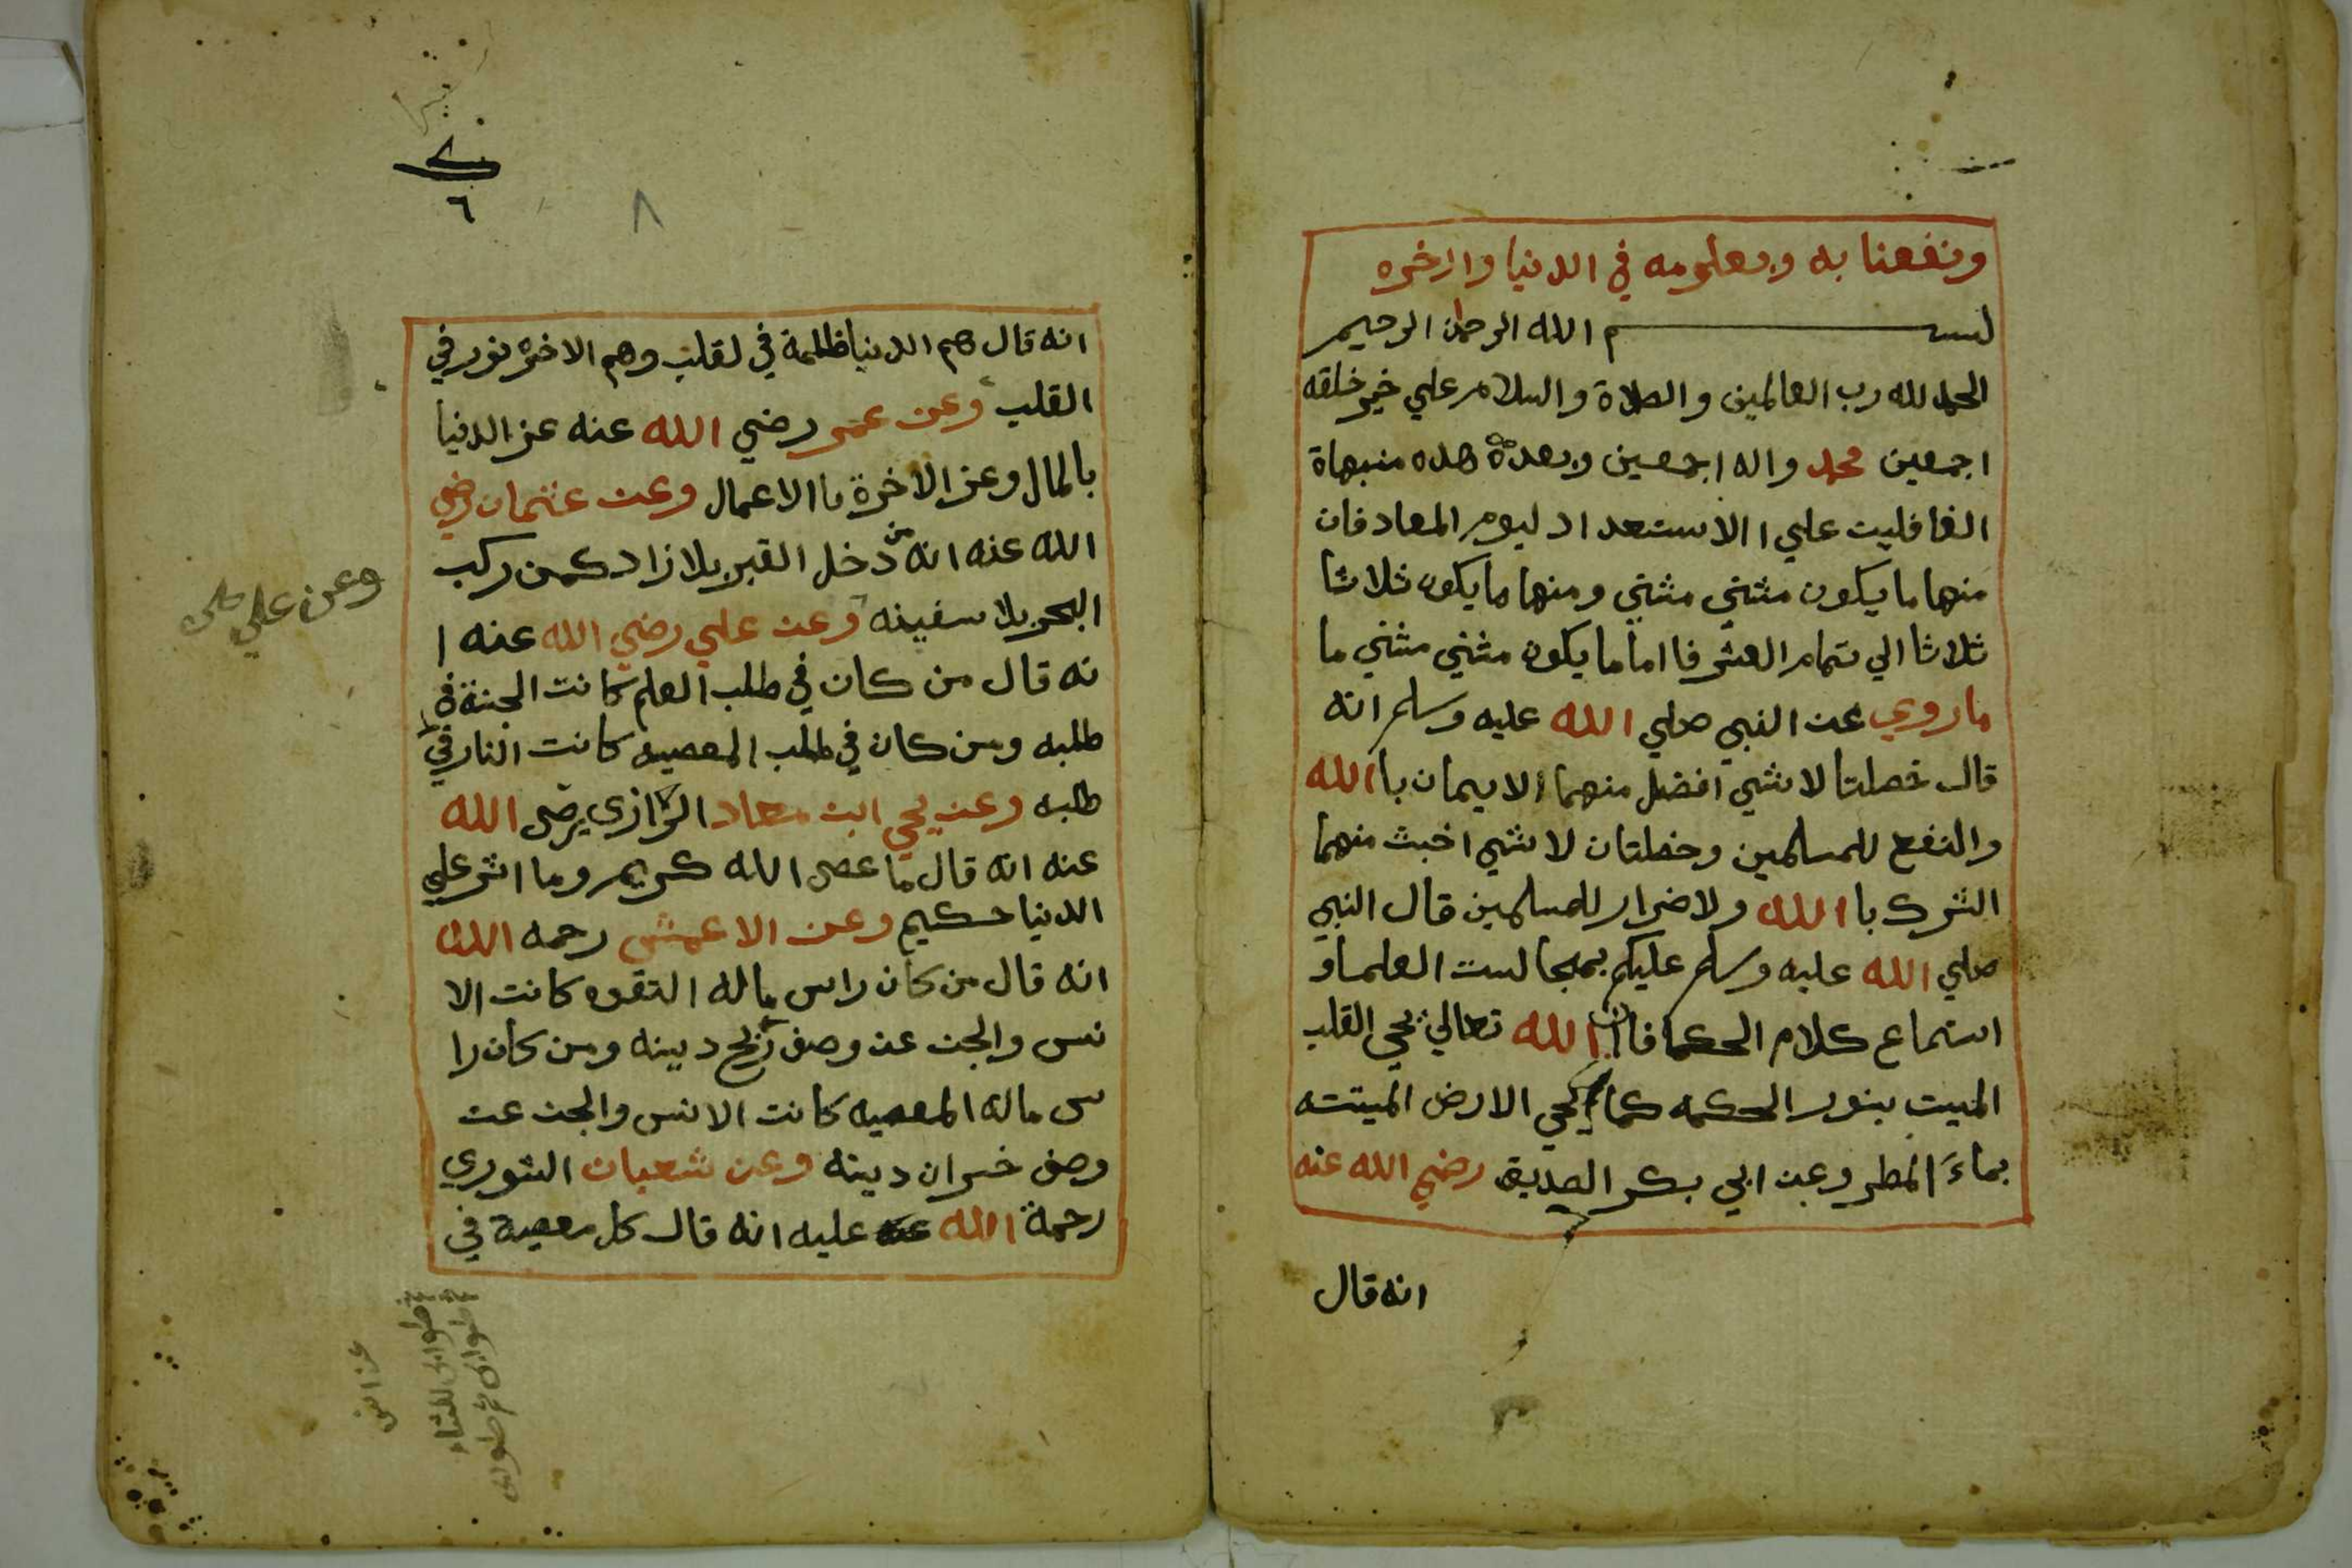 ونفعنا به وبعلومه في الدنيا والاخره
بسم الله الرحمن الرحيم
الحمد لله رب العالمين والصلاة والسلام علي خير خلقه
اجمعين محمد واله اجمعين وبعده هده منبهاة
الغافلين علي الاستعداد ليوم المعاد فان
منها ما يكون مثني مثني ومنها ما يكون ثلاثا
ثلاثا الي تمام العشر فااما ما يكون مثني مثني ما
ما روي عن النبي صلي الله عليه وسلم انه
قال خصلتا لا شي افضل منهما الايمان باالله
والنفع للمسلمين وخصلتان لا شي اخبث منهما
الشرك باالله ولاضرار للمسلمين قال النبي
صلي الله عليه وسلم عليكم بمجالست العلما و
استماع كلام الحكما فان الله تعالي يحي القلب
الميت بنور الحكمه كما يحي الارض الميتته
بماء المطر وعن ابي بكر الصديق رضي الله عنه
انه قال
٨
٦
انه قال هم الدنيا ظلمة في لقلب وهم الاخره نور في
القلب وعن عمر رضي الله عنه عز الدنيا
بالمال وعز الاخرة باالاعمال وعن عثمان رضي
الله عنه انه من دخل القبر بلا زاد كمن ركب
البحر بلا سفينه وعن علي رضي الله عنه ا
نه قال من كان في طلب العلم كانت الجنة في
طلبه ومن كان في طلب المعصيه كانت النار في
طلبه وعن يحي ابن معاد الرازي رضى الله
عنه انه قال ما عصى الله كريم وما اثر علي
الدنيا حكيم وعن الاعمش رحمه الله
انه قال من كان راس ماله التقوه كانت الا
نس والجن عن وصف ربح دينه ومن كان را
س ماله المعصيه كانت الانس والجن عن
وصف خسران دينه وعن شعبان الثوري
رحمة الله عليه انه قال كل معصية في
وعن علي